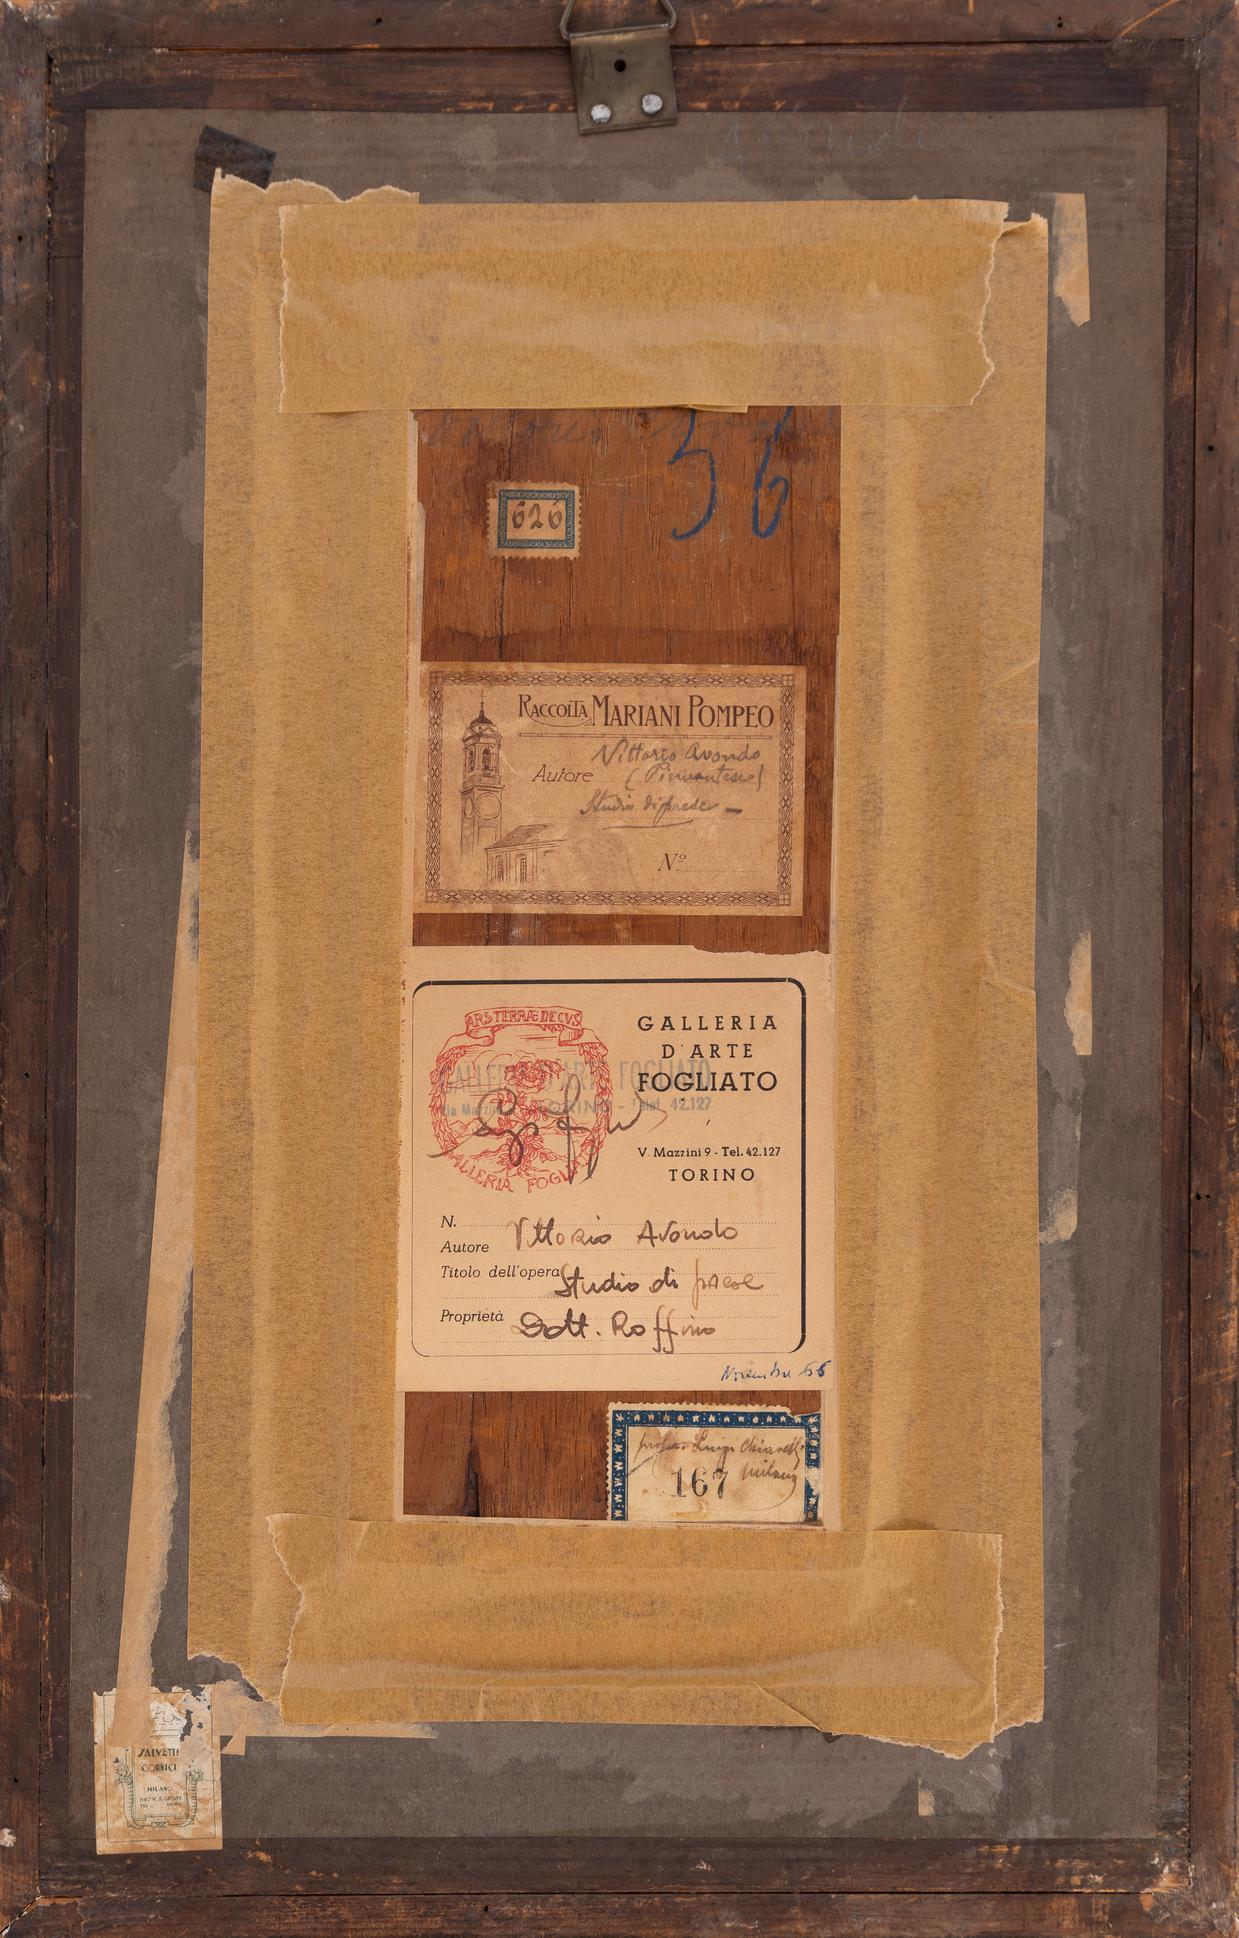 56
626
RACCOLTA MARIANI POMPEO
Vittorio Avondo
Autore (Piemontese)
Studio di paese –
Nº
ARS TERRÆ DECUS
GALLERIA FOGLIATO
GALLERIA D'ARTE FOGLIATO
Via Mazzini TORINO - Telef. 42.127
GALLERIA
D'ARTE
FOGLIATO
V. Mazzini 9 - Tel. 42.127
TORINO
N.
Autore Vittorio Avondo
Titolo dell'opera Studio di paese
Proprietà Dott. Roffino
Novembre 66
Luigi
167 Milano
SALVETTI
CORNICI
MILANO